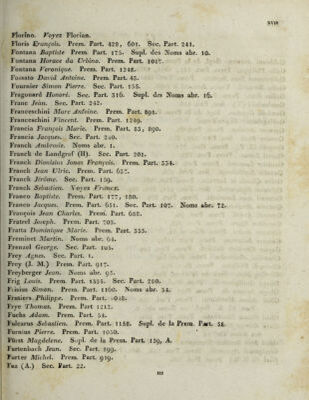 XVII
Florino. Voyez Florian.
Floris François. Prem. Part. 429, 601. Sec. Part. 241.
Fontana Baptiste Prem. Part. 175. Supl. des Noms abr. 10.
Fontana Horace da Urbino. Prem. Part. 1017.
Fontana Veronique. Prem. Part. 1248.
Fossato David Antoine. Prem. Part. 45.
Fournier Simon Pierre. Sec. Part. 156.
Fragonard Honoré. Sec. Part. 316. Supl. des Noms abr. 16.
Franc Jean. Sec. Part. 242.
Franceschini Marc Antoine. Prem. Part. 891.
Franceschini Vincent. Prem. Part. 1249.
Francia François Marie. Prem. Part. 55, 890.
Francia Jacques. Sec. Part. 240.
Franck Ambroise. Noms abr. 1.
Franck de Landgraf (H). Sec. Part. 201.
Franck Dionisius Jonas François. Prem. Part. 354.
Franck Jean Ulric. Prem. Part. 657.
Franck Jérôme. Sec. Part. 159.
Franck Sebastien. Voyez France.
Franco Baptiste. Prem. Part. 177, 180.
Franco Jacques. Prem. Part. 651. Sec. Part. 107. Noms abr. 72.
François Jean Charles. Prem. Part. 688.
Fratrel Joseph. Prem. Part. 703.
Fratta Dominique Marie. Prem. Part. 355.
Freminet Martin. Noms abr. 64.
Frenzel George. Sec. Part. 105.
Frey Agnes. Sec. Part. 1.
Frey (J. M.) Prem. Part. 917.
Freyberger Jean. Noms abr. 95.
Frig Louis. Prem. Part. Sec. Part. 210.
Frisius Simon. Prem. Part. 1160. Noms abr. 34.
Frsniers Philippe. Prem. Part.
Frye Thomas. Prem. Part. 1217.
Fuchs Adam. Prem. Part. 54.
Fulcarus Sebastien. Prem. Part. 1158. Supl. de la Prem. Part. 58.
Furnius Pierre. Prem. Part. 1050.
Fürst Magdelene. Supl. de la Prem. Part. 159, A.
Furtenbach Jean. Sec. Part. 199.
Furter Michel. Prem. Part. 919.
Fuz (A.) Sec. Part. 22.